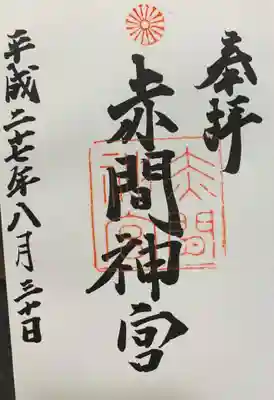 奉拝
赤間神宮
赤間神宮
平成二十七年八月三十日